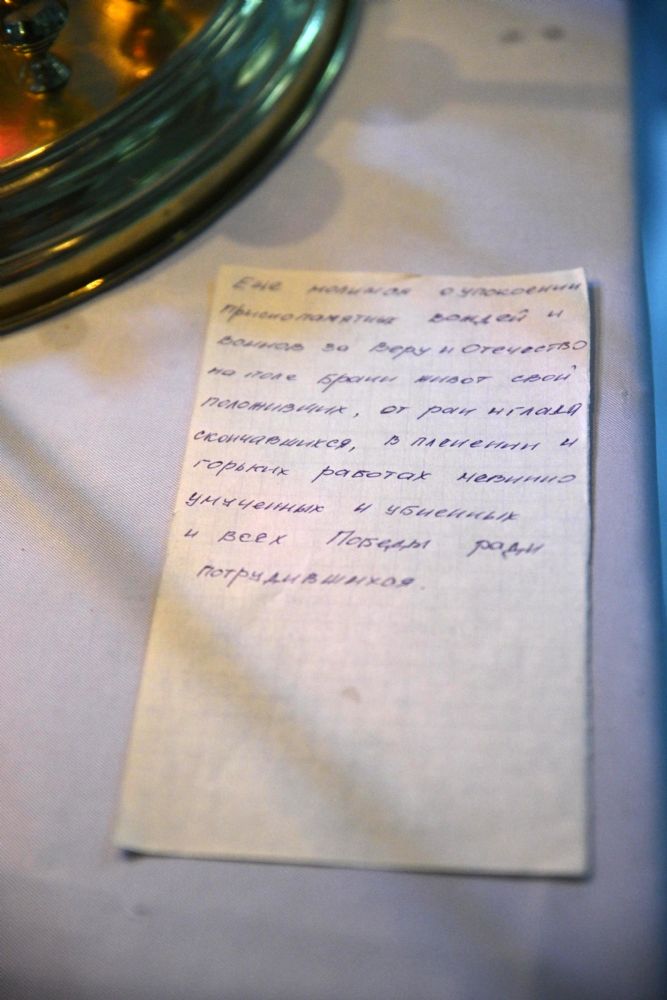 Еще молимся о упокоении
приснопамятных вождей и
воинов за Веру и Отечество
на поле брани живот свой
положивших, от ран и глада
скончавшихся, в пленении и
горьких работах невинно
умученных и убиенных
и всех Победы ради
потрудившихся.